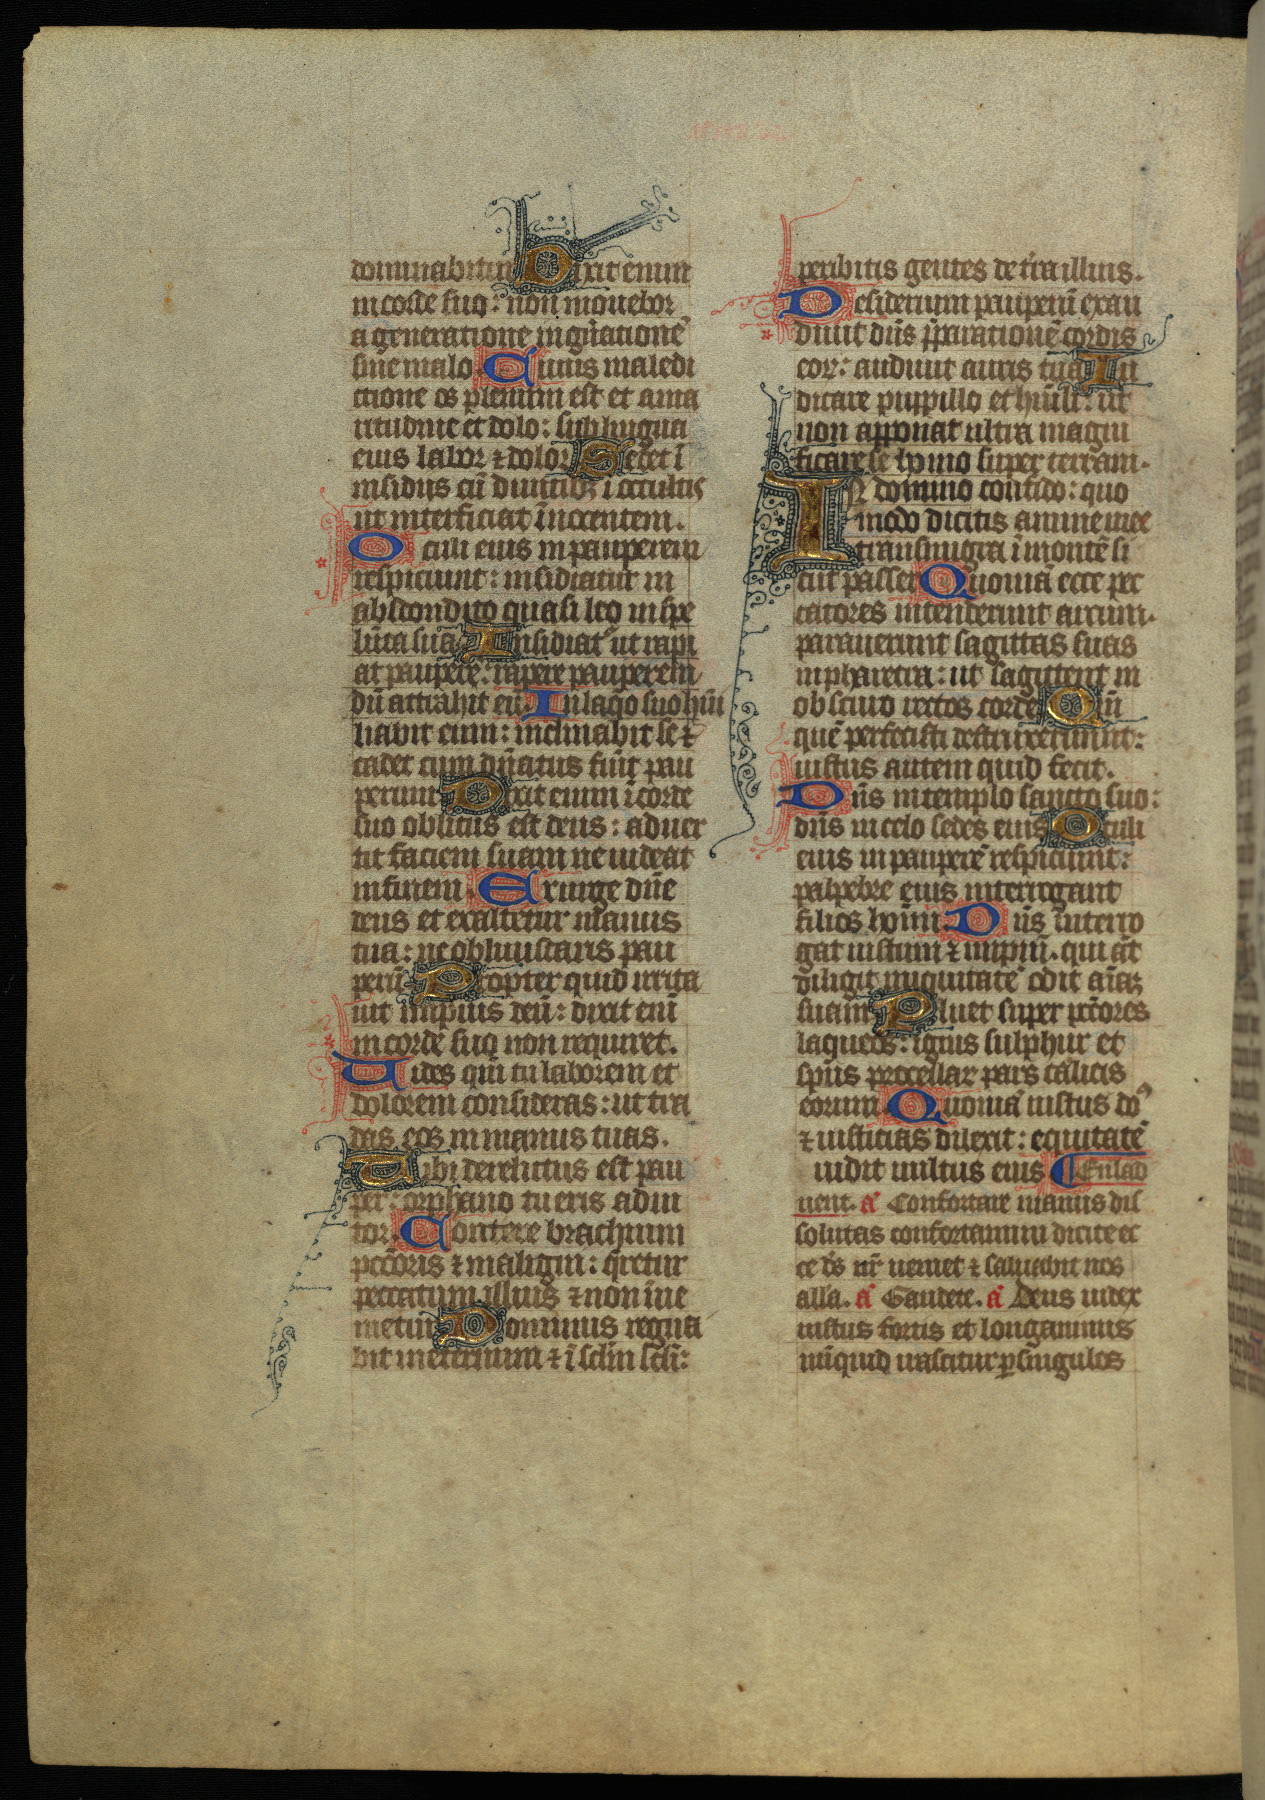 dominabitur Dixit enim
in corde suo: non movebor
a generatione in gn̄atione᷒
sine malo Cuius maledi
ctione os plenum est et ama
ritudine et dolo: sub lingua
eius labor ⁊ dolor Sedet ī
insidiis cū divitibꝫ ī occultis
ut interficiat īnocentem.
Oculi eius in pauperem
respiciunt: insidiatur in
abscondito quasi leo in spe
lūca sua Insidiat᷒ ut rapi
at paupere᷒: rapere pauperem
dū attrahit eū. In laq̄o suo hūi
liabit eum: inclinabit se ⁊
cadet cum dn̄atus fūit pau
perum Dixit enim ī corde
suo oblitus est deus: aduer
tit faciem suam ne uideat
in finem. Exurge dn̄e
deus et exaltetur manus
tua: ne obliuiscaris pau
perū Propter quid irrita
uit impius deū: dixit enī
in corde suo non requiret.
Uides qm̄ tu laborem et
dolorem consideras: ut tra
das eos in manus tuas.
Tibi derelictus est pau
per: orphano tu eris adiu
tor. Contere brachium
pccōris ⁊ maligni: q̄retur
peccatum illius ⁊ non īue
nietur Dominus regna
bit in eternum ⁊ ī sclm̄ scli̅:
peribitis gentes de tr̄a illius.
Desiderium pauperū exau
diuit dn̄s p̄parationē cordis
eoꝝ: audiuit auris tua Iu
dicare pupillo et hūili: ut
non apponat ultra magni
ficare se homo super terram.
IN domino confido: quo
modo dicitis anime mee
transmigra ī montē si
cut passer Quoniā ecce pec
catores intenderunt arcum.
parauerunt sagittas suas
in pharetra: ut sagittent in
obscuro rectos corde Qm̄
quē perfecisti destruxerunt:
iustus autem quid fecit.
Dn̄s in templo sancto suo:
dn̄s in celo sedes eius Oculi
eius in pauperē respiciunt:
palpebre eius interrogant
filios hoīm. Dn̄s interro
gat iustum ⁊ impiū. qui aūt
diligit iniquitatē odit aīaꝫ
suam Pluet super pccōres
laqueos: ignis sulphur et
spūs procellaꝝ pars calicis
eorum Quoniā iustus do᷒
⁊ iusticias dilexit: equitatē
uidit uultus eius ¶ Ens ad
uent. a᷒ Confortate manus dis
solutas confortamini dicite ec
ce ds̄ nr̄ ueniet ⁊ saluabit nos
alla. a᷒ Gaudete. a᷒ Deus iudex
iustus fortis et longanimus
nūquid irascitur ꝑ singulos